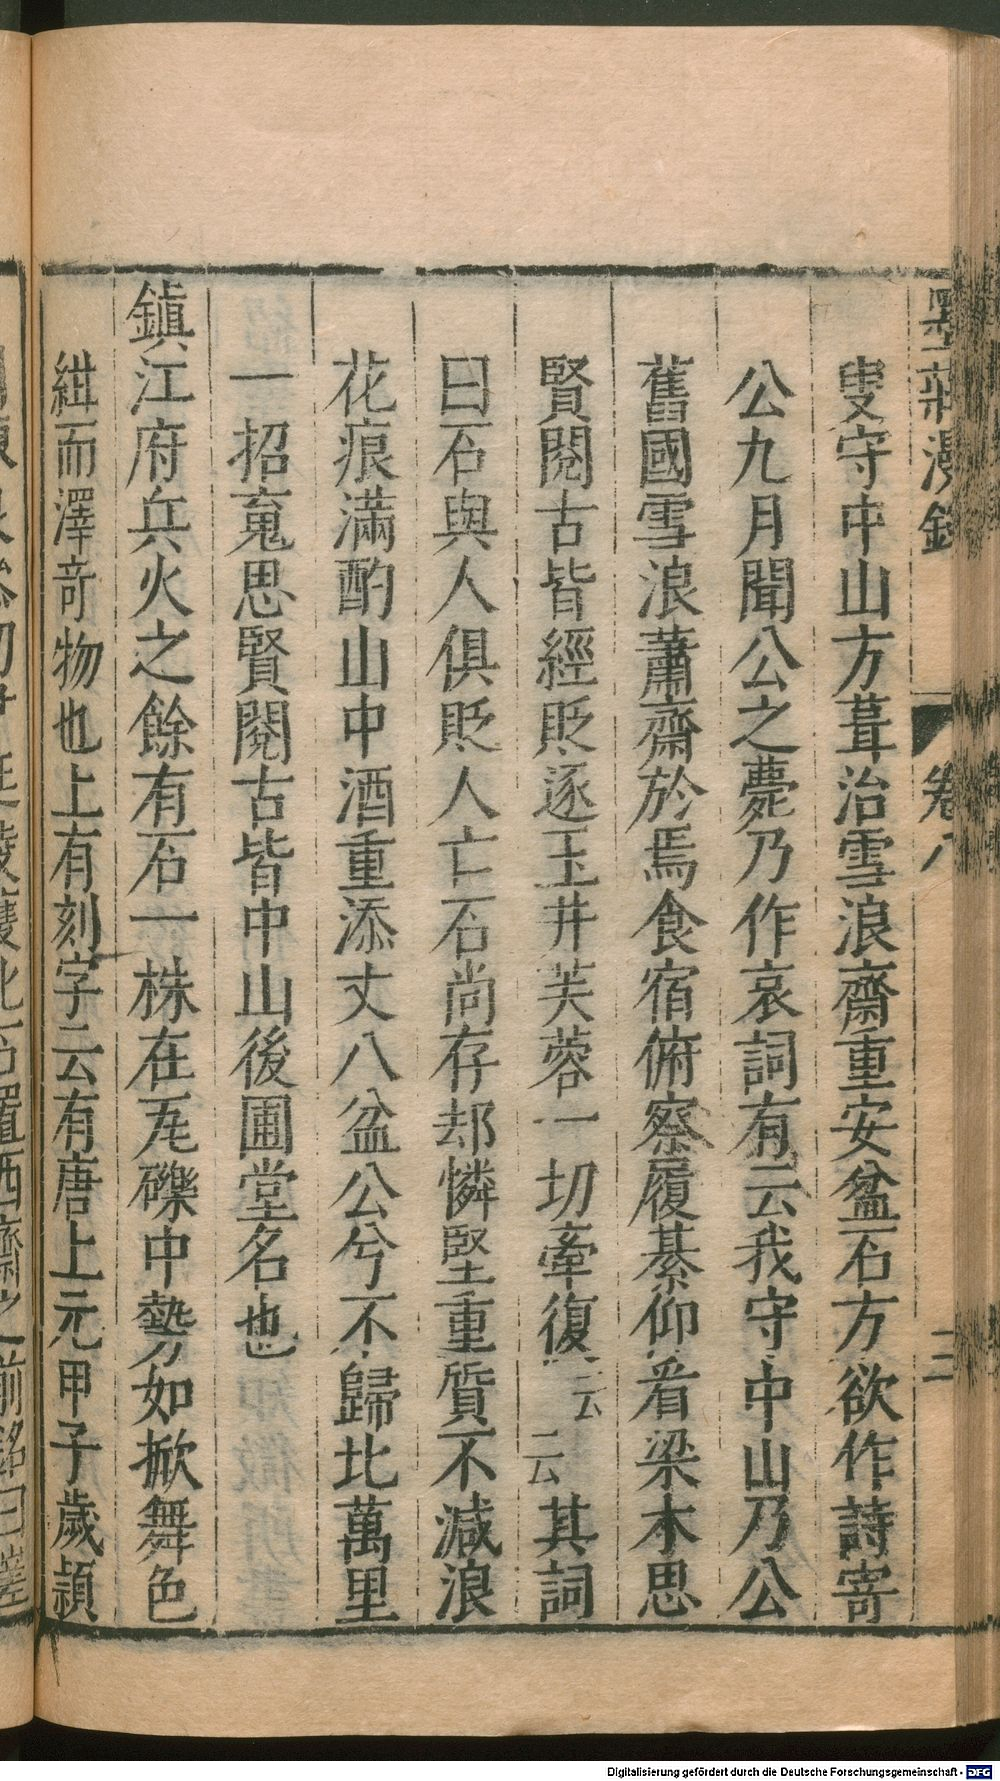 墨莊漫錄
卷八
三
叟守中山方葺治雪浪齋重安盆石方欲作詩寄
公九月聞公之薨乃作哀詞有云我守中山乃公
舊國雪浪蕭齋於焉食宿俯察履綦仰看梁木思
賢閱古皆經貶逐玉井芙蓉一切牽復云云其詞
曰石與人俱貶人亡石尚存却憐堅重質不減浪
花痕滿酌山中酒重添丈八盆公兮不歸北萬里
一招䰟思賢閱古皆中山後圃堂名也
鎮江府兵火之餘有石一株在瓦礫中勢如掀舞色
紺而澤奇物也上有刻字云有唐上元甲子歲頴
此石置西齋之前銘曰
Digitalisierung gefördert durch die Deutsche Forschungsgemeinschaft - DFG